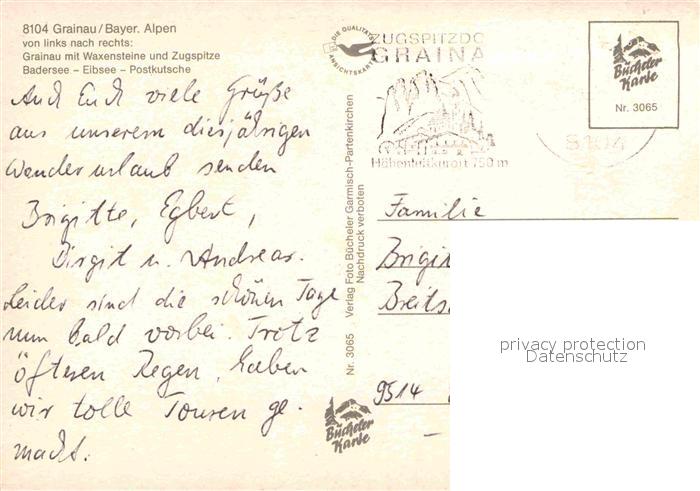 8104 Grainau/Bayer. Alpen
von links nach rechts:
Grainau mit Waxensteine und Zugspitze
Badersee – Eibsee – Postkutsche
Auch Euch viele Grüße
aus unserem diesjährigen
Wanderurlaub senden
Brigitte, Egbert,
Birgit u. Andreas.
Leider sind die schönen Tage
nun bald vorbei. Trotz
öfteren Regen, haben
wir tolle Touren ge-
macht.
DIE QUALITÄTS
ANSICHTSKARTE
Nr. 3065 Verlag Foto Bücheler Garmisch-Partenkirchen
Nachdruck verboten
Bücheler
Karte
ZUGSPITZDO
GRAINA
Höhenluftkurort 750 m
8104
Bücheler
Karte
Nr. 3065
Familie
Brigit
Breits
9514
privacy protection
Datenschutz